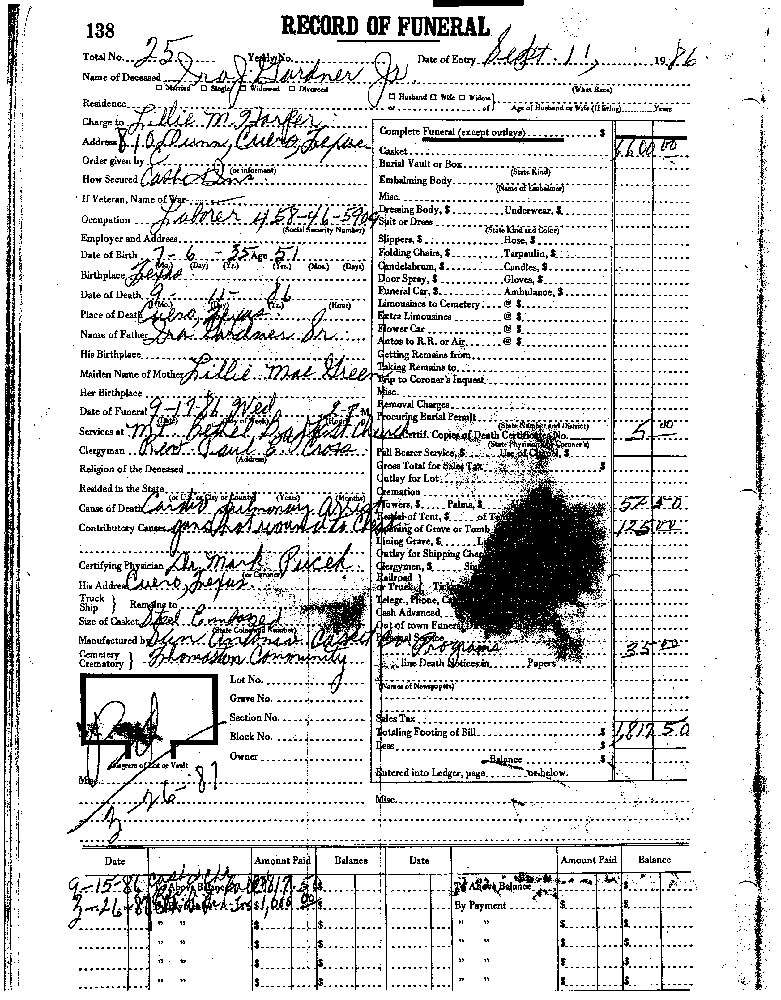 138
RECORD OF FUNERAL
Total No. 25 Yearly No. Date of Entry Sept. 11, 1986
Name of Deceased Ira J Gardner Jr.
☐ Married ☐ Single ☐ Widowed ☐ Divorced (What Race)
Residence ☐ Husband ☐ Wife ☐ Widow of Age of Husband or Wife (if living) Years
Charge to Lillie M. Harper
Address 810 Dunn, Cuero, Texas
Order given by (or informant)
How Secured Cash &
If Veteran, Name of War
Occupation Laborer
(Social Security Number)
Employer and Address
Date of Birth 7-6-35 Age 51
(Mo.) (Day) (Yr.) (Yrs.) (Mos.) (Days)
Birthplace Texas
Date of Death 9 11 86
(Mo.) (Day) (Yr.) (Hour)
Place of Death Cuero, Texas
Name of Father Ira Gardner Sr.
His Birthplace
Maiden Name of Mother Lillie Mae Green
Her Birthplace
Date of Funeral Wed 2 P.M.
Services at Mt. Bethel Baptist Church
Clergyman Rev. Paul E. Cross
(Address)
Religion of the Deceased
Resided in the State
(or U.S. or City or County) (Years) (Months)
Cause of Death Cardio pulmonary Arrest
Contributory Causes gunshot wound to Chest
Certifying Physician Dr. Mark Pucek
(or Coroner)
His Address Cuero, Texas
Truck Ship } Remains to
Size of Casket Steel Embossed
(State Color and Number)
Manufactured by San Antonio Casket Co
Cemetery Crematory } Thomaston Community
Lot No.
Grave No.
Section No.
Block No.
Owner
Paid
Diagram of Lot or Vault
3-26-87
Complete Funeral (except outlays) $
Casket
Burial Vault or Box
(State Kind)
Embalming Body
(Name of Embalmer)
Misc.
Dressing Body, $ Underwear, $
Suit or Dress
(State Kind and Color)
Slippers, $ Hose, $
Folding Chairs, $ Tarpaulin, $
Candelabrum, $ Candles, $
Door Spray, $ Gloves, $
Funeral Car, $ Ambulance, $
Limousines to Cemetery @ $
Extra Limousines @ $
Flower Car @ $
Autos to R.R. or Air @ $
Getting Remains from
Taking Remains to
Trip to Coroner's Inquest
Misc.
Removal Charges
Procuring Burial Permit
(State Number and District)
Certif. Copies of Death Certificate No. 5 00
(State Physician's or Coroner's)
Pall Bearer Service, $ Use of Chapel, $
Gross Total for Sales Tax $
Outlay for Lot
Cremation
Flowers, $ Palms, $ 57 50
Rental of Tent, of
Opening of Grove or Tomb 125 00
Lining Grave,
Outlay for Shipping
Clergymen, $
Railroad or Truck }
Telegr., Phone,
Cash Advanced
Out of town Funeral
Programs 35 00
line Death Notices in Papers
(Names of Newspapers)
Sales Tax
Totaling Footing of Bill $ 1,817 50
Less
Balance $
Entered into Ledger, page or below.
Misc.
Date Amount Paid Balance Date Amount Paid Balance
9-15-86 To Above Balance $ To Above Balance $
3-26-87 $1,000 00 $ By Payment $ $
" " $ $ " " $ $
" " $ $ " " $ $
" " $ $ " " $ $
" " $ $ " " $ $